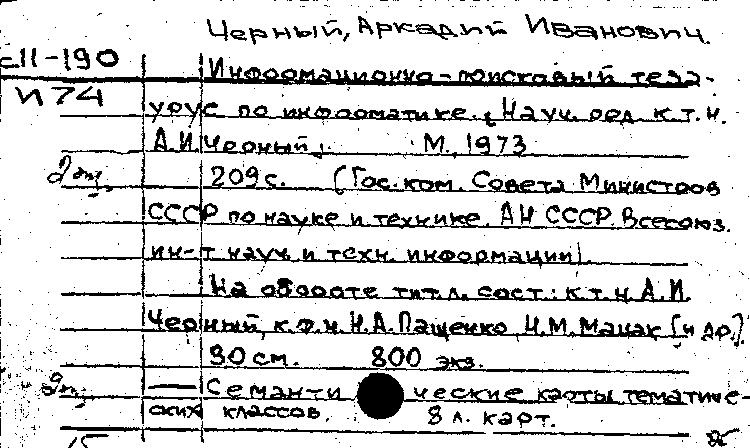 Черный, Аркадий Иванович.
с11-190
Информационно-поисковый теза-
И74
урус по информатике. Науч. ред. к.т.н.
А.И. Черный. М., 1973
2 эк.
209 с. (Гос. ком. Совета Министров
СССР по науке и технике. АН СССР. Всесоюз.
ин-т науч. и техн. информации).
На обороте тит. л. сост.: к.т.н. А.И.
Черный, к.ф.н. Н.А. Пащенко, И.М. Мацак [и др.].
30 см. 800 экз.
2 эк.
— Семантические карты тематиче-
ских классов. 8 л. карт.